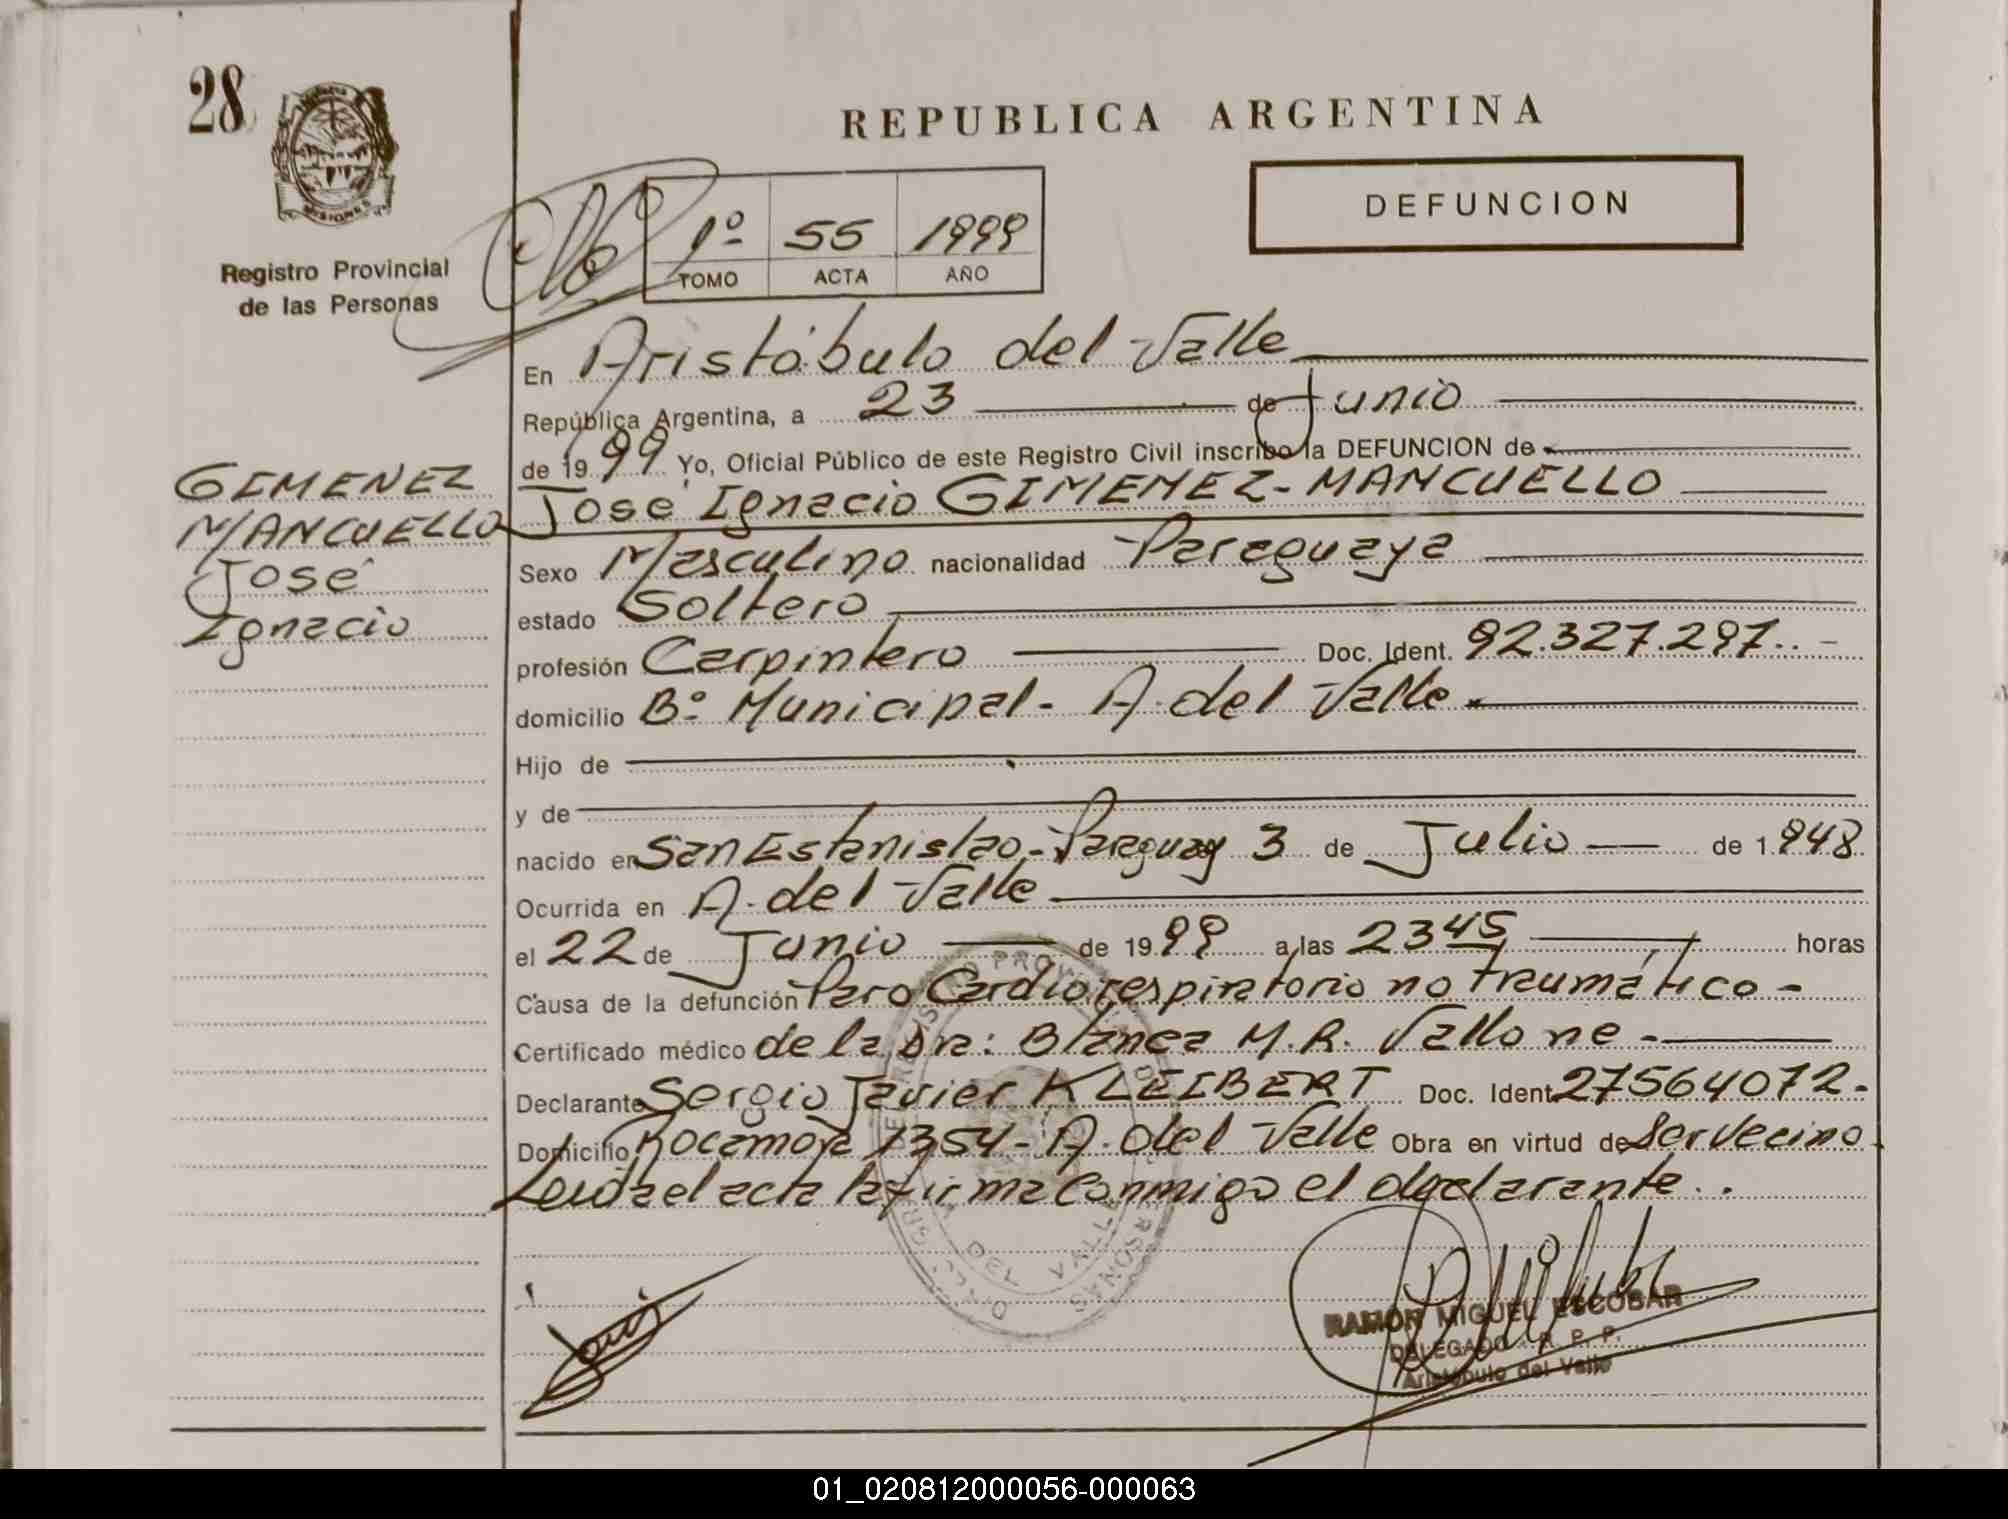 28
MISIONES
Registro Provincial
de las Personas
REPUBLICA ARGENTINA
DEFUNCION
1º 55 1999
TOMO ACTA AÑO
En Aristóbulo del Valle
República Argentina, a 23 de Junio
de 1999 Yo, Oficial Público de este Registro Civil inscribo la DEFUNCION de
José Ignacio GIMENEZ-MANCUELLO
GIMENEZ
MANCUELLO
José
Ignacio
Sexo Masculino nacionalidad Paraguaya
estado Soltero
profesión Carpintero Doc. Ident. 92.327.297..-
domicilio Bº Municipal- A. del Valle.
Hijo de
y de
nacido en San Estanislao-Paraguay 3 de Julio de 1.948
Ocurrida en A. del Valle
el 22 de Junio de 1999 a las 23 45 horas
Causa de la defunción Paro Cardiorespiratorio no traumático-
Certificado médico de la Dra: Blanca M.R. Vallone-
Declarante Sergio Javier KLEIBERT Doc. Ident 27564072-
Domicilio Rocamora 1354- A. del Valle Obra en virtud de Ser Vecino.
Leida el acta la firma Conmigo el declarante..
DEL VALLE
RAMON MIGUEL ESCOBAR
DELEGADO R. P. P.
Aristóbulo del Valle
01_020812000056-000063